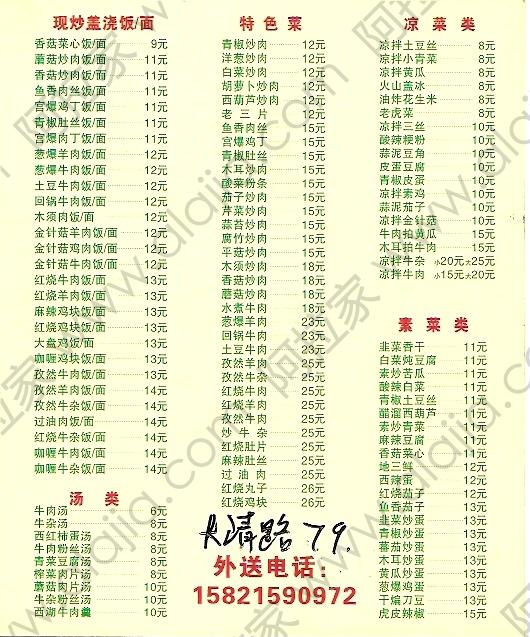 现炒盖浇饭/面
香菇菜心饭/面 9元
蘑菇炒肉饭/面 11元
香菇炒肉饭/面 11元
鱼香肉丝饭/面 11元
宫爆鸡丁饭/面 11元
青椒肚丝饭/面 11元
宫爆肉丁饭/面 11元
葱爆羊肉饭/面 12元
葱爆牛肉饭/面 12元
土豆牛肉饭/面 12元
回锅牛肉饭/面 12元
木须肉饭/面 12元
金针菇羊肉饭/面 12元
金针菇鸡肉饭/面 12元
金针菇牛肉饭/面 12元
红烧牛肉饭/面 13元
红烧羊肉饭/面 13元
麻辣鸡块饭/面 13元
红烧鸡块饭/面 13元
大盘鸡饭/面 13元
咖喱鸡块饭/面 13元
孜然牛肉饭/面 14元
孜然羊肉饭/面 14元
孜然牛杂饭/面 14元
过油肉饭/面 14元
红烧牛杂饭/面 14元
咖喱牛肉饭/面 14元
咖喱牛杂饭/面 14元
汤 类
牛肉汤 6元
牛杂汤 8元
西红柿蛋汤 8元
牛肉粉丝汤 8元
青菜豆腐汤 8元
榨菜肉片汤 8元
蘑菇肉片汤 10元
牛杂粉丝汤 10元
西湖牛肉羹 10元
特 色 菜
青椒炒肉 12元
洋葱炒肉 12元
白菜炒肉 12元
胡萝卜炒肉 12元
西葫芦炒肉 12元
老三片 12元
鱼香肉丝 15元
宫爆鸡丁 15元
青椒肚丝 15元
木耳炒肉 15元
酸菜粉条 15元
茄子炒肉 15元
芹菜炒肉 15元
蒜苔炒肉 15元
腐竹炒肉 15元
平菇炒肉 15元
木须炒肉 18元
香菇炒肉 18元
蘑菇炒肉 18元
水煮牛肉 18元
葱爆羊肉 23元
回锅牛肉 23元
土豆牛肉 23元
孜然羊肉 25元
孜然牛杂 25元
红烧羊肉 25元
红烧牛肉 25元
孜然牛肉 25元
炒牛杂 25元
红烧肚片 25元
麻辣肚丝 25元
过油肉 25元
红烧丸子 26元
红烧鸡块 26元
大清路 79.
外送电话：
15821590972
凉 菜 类
凉拌土豆丝 8元
凉拌小青菜 8元
凉拌黄瓜 8元
火山盖冰 8元
油炸花生米 8元
老虎菜 8元
凉拌三丝 10元
酸辣粳粉 10元
蒜泥豆角 10元
皮蛋豆腐 10元
青椒皮蛋 10元
凉拌素鸡 10元
蒜泥茄子 10元
凉拌金针菇 10元
牛肉拍黄瓜 15元
木耳拍牛肉 15元
凉拌牛杂 小20元大25元
凉拌牛肉 小15元大20元
素 菜 类
韭菜香干 11元
白菜炖豆腐 11元
素炒苦瓜 11元
酸辣白菜 11元
青椒土豆丝 11元
醋溜西葫芦 11元
素炒青菜 11元
麻辣豆腐 11元
香菇菜心 11元
地三鲜 12元
西辣蛋 12元
红烧茄子 12元
鱼香茄子 13元
韭菜炒蛋 13元
青椒炒蛋 13元
蕃茄炒蛋 13元
木耳炒蛋 13元
黄瓜炒蛋 13元
葱爆鸡蛋 13元
干煸刀豆 13元
虎皮辣椒 13元
阿拉家 www.alajia.com